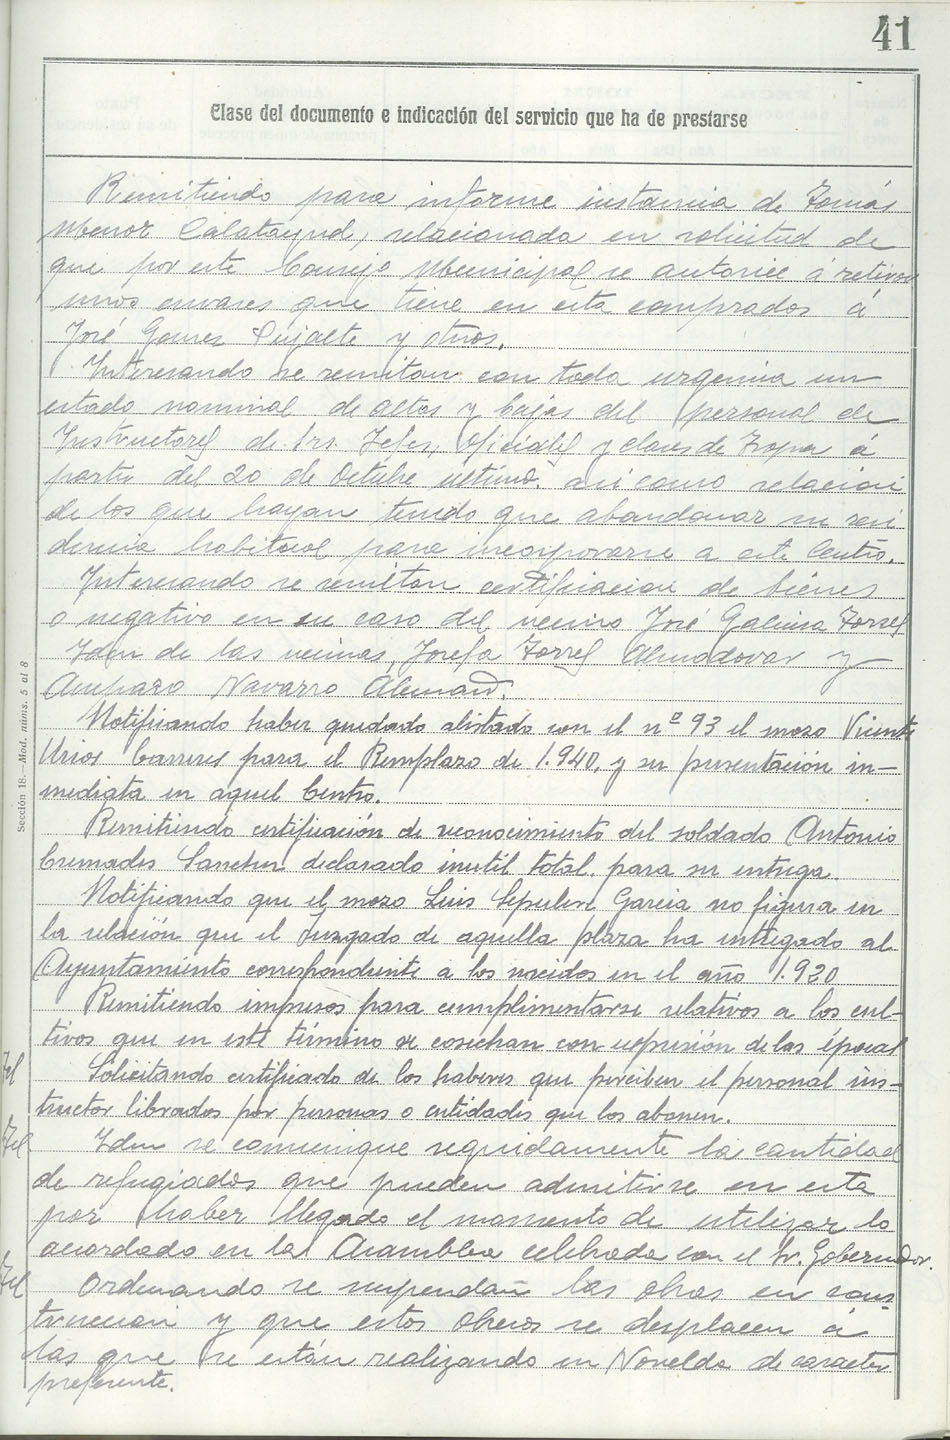 41
Clase del documento e indicación del servicio que ha de prestarse
Remitiendo para informe instancia de Tomás
Menor Calatayud, relacionada en solicitud de
que por este Consejo Municipal se autorice á retirar
unos envases que tiene en esta comprados á
José Gomez Quijalte y otros.
Interesando se remitan con toda urgencia un
estado nominal de altas y bajas del personal de
Instructores de Srs. Jefes, Oficiales y clases de Tropa á
partir del 20 de Octubre último. asi como relacion
de los que hayan tenido que abandonar su resi
dencia habitual para incorporarse a este Centro.
Interesando se remitan certificacion de bienes
o negativo en su caso del vecino José Galiana Torres
Idem de las vecinas, Josefa Torres Almodovar y
Amparo Navarro Alemañ.
Notificando haber quedado alistado con el nº 93 el mozo Vicente
Urios Carreres para el Remplazo de 1.940, y su presentación in-
mediata en aquel Centro.
Remitiendo certificación de reconocimiento del soldado Antonio
Cremades Sanchez declarado inutil total. para su entrega.
Notificando que el mozo Luis Sepulcre Garcia no figura en
la relación que el Juzgado de aquella plaza ha entregado al
Ayuntamiento correspondiente a los nacidos en el año 1.920
Remitiendo impresos para cumplimentarse relativos a los cul-
tivos que en este término se cosechan con expresión de las épocas
Solicitando certificado de los haberes que perciben el personal ins-
tructor librados por personas o entidades que los abonen.
Idem se comunique seguidamente la cantidad
de refugiados que pueden admitirse en esta
por haber llegado el momento de utilizar lo
acordado en la Asamblea celebrada con el Sr. Gobernador.
Ordenando se suspendan las obras en cons
truccion y que estos obreros se desplacen á
las que se están realizando en Novelda de caracter
preferente.
Sección 18.—Mod. núms. 5 al 8